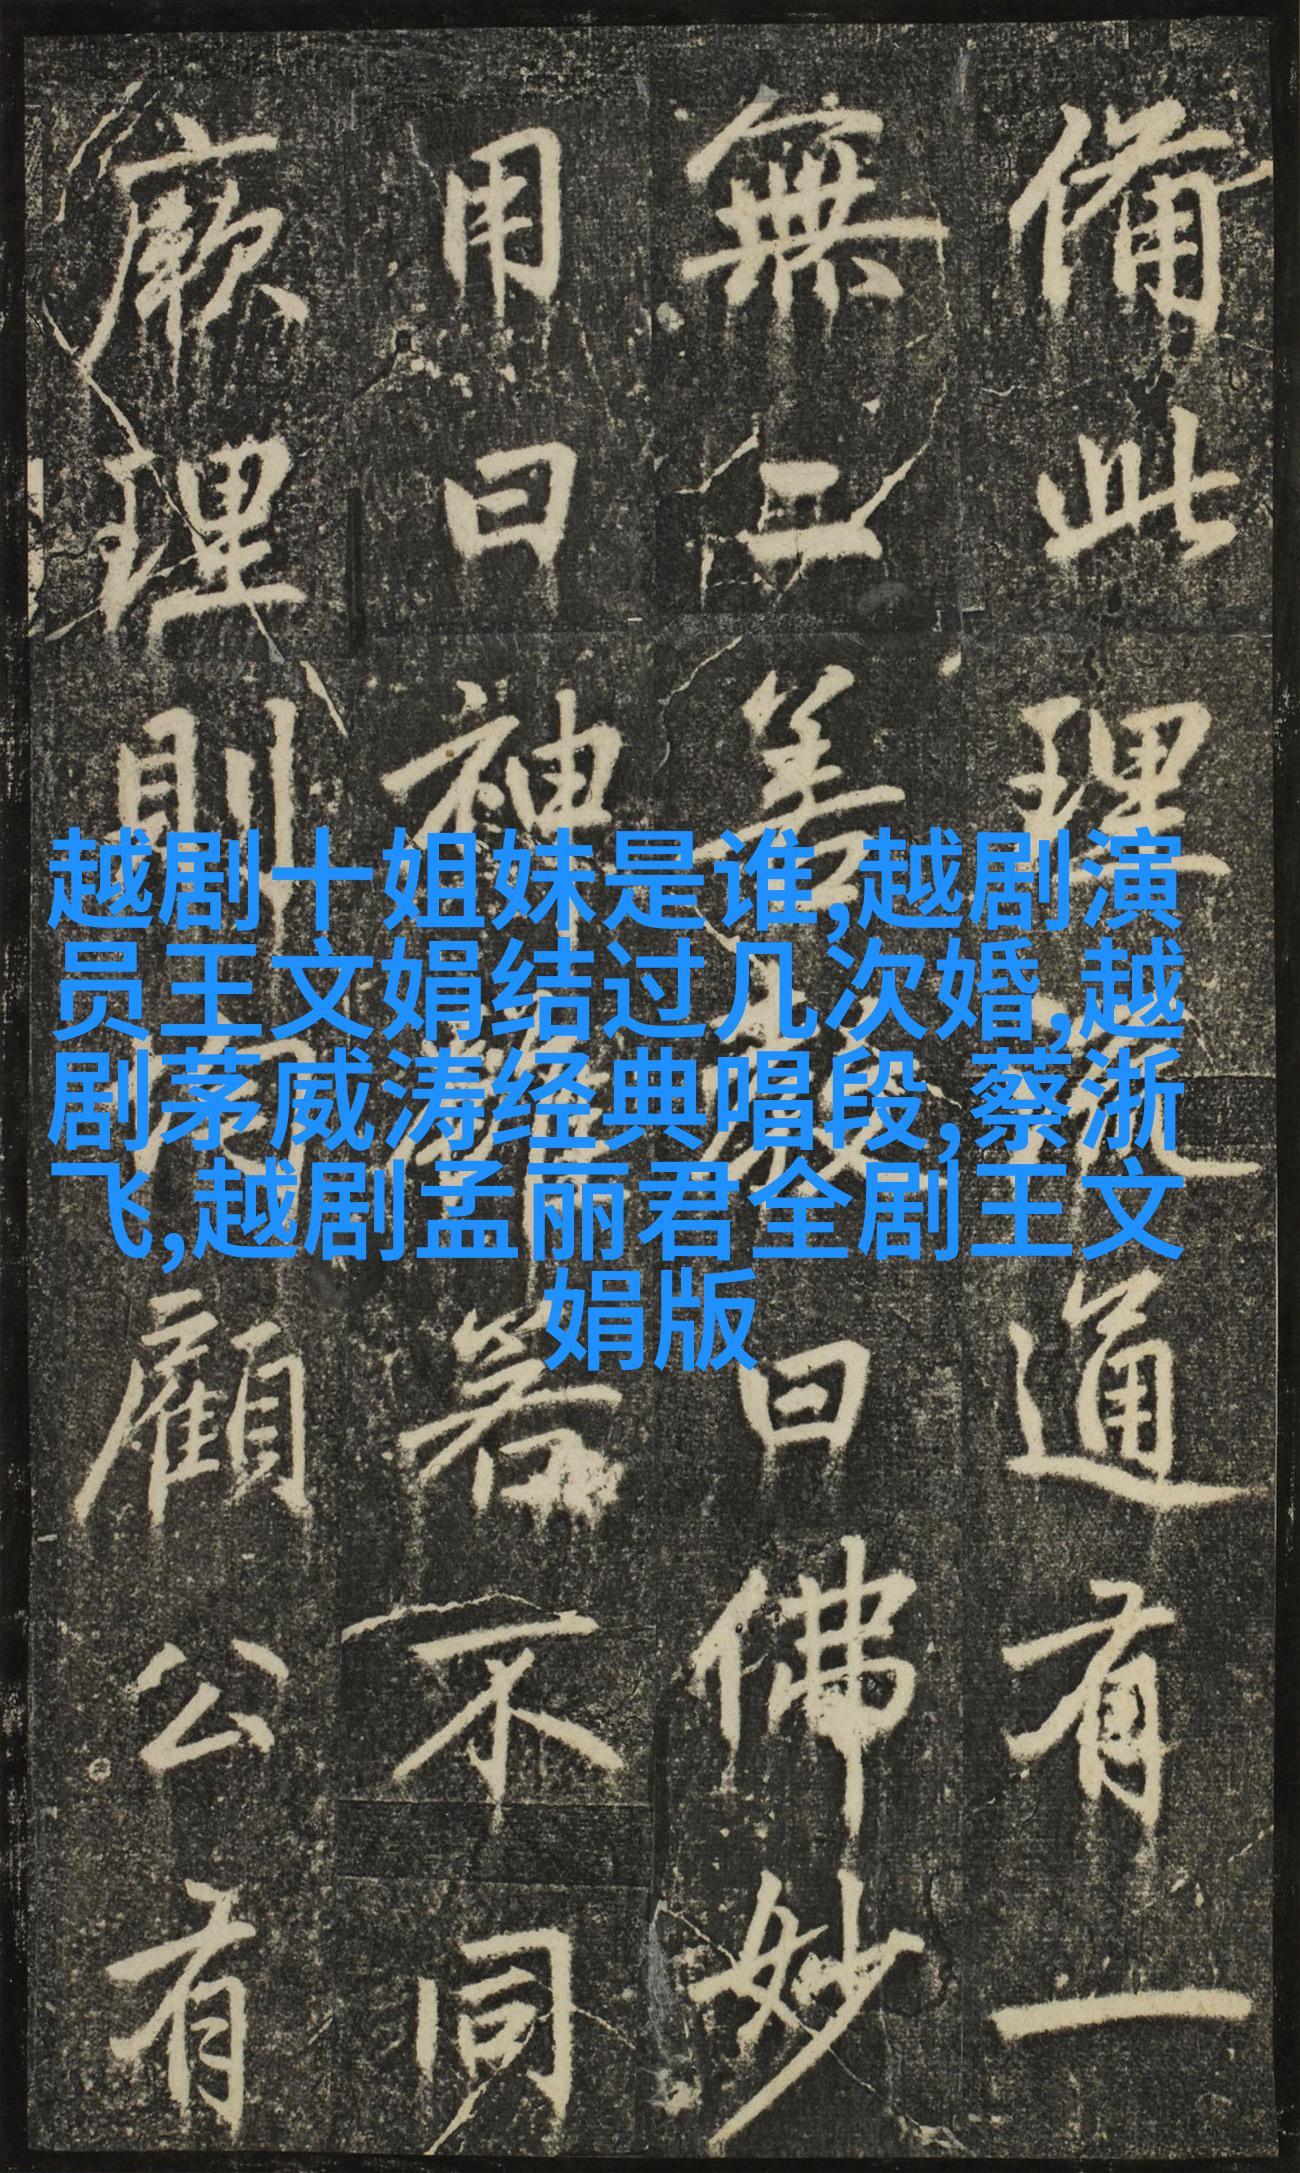 越剧十姐妹是谁,越剧演
员王文娟结过几次婚,越
剧茅威涛经典唱段,蔡浙
飞,越剧孟丽君全剧王文
娟版
備此理通有一
無二善曰佛妙
用曰神若不同
厥理則顧公有